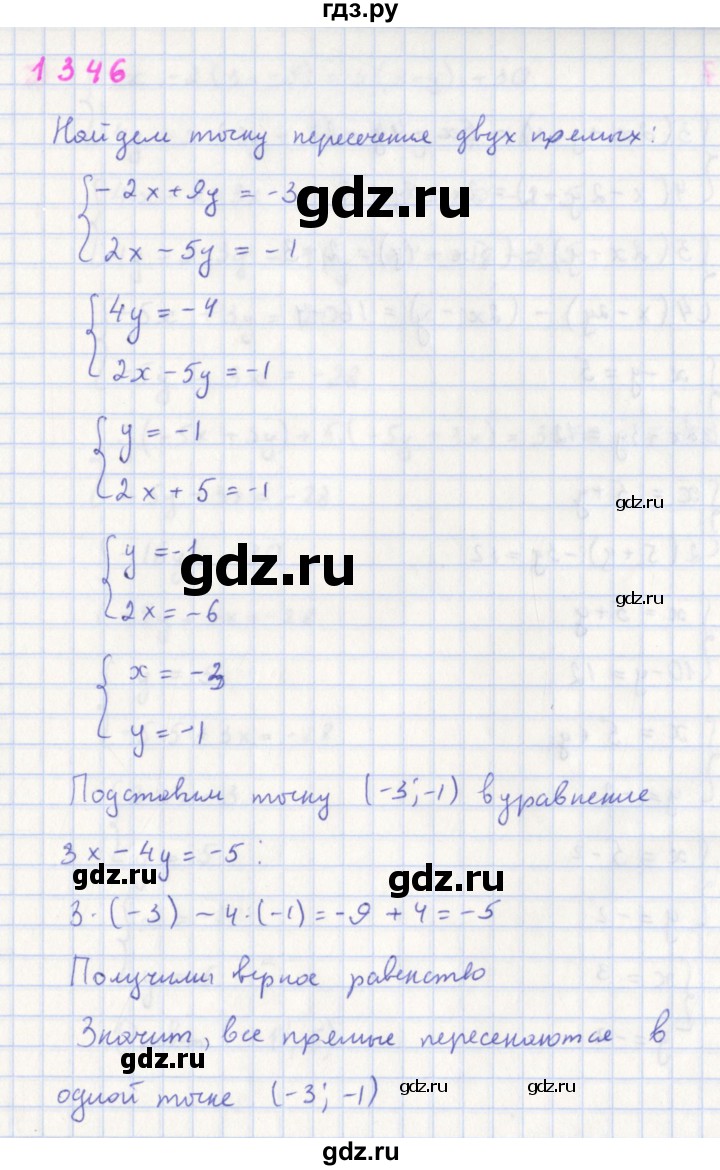 гдз.ру
1346
Найдем точку пересечения двух прямых:
{-2x+9y = -3
gdz.ru
2x-5y = -1
{4y = -4
2x-5y = -1
{y = -1
2x+5 = -1
gdz.ru
{y = -1
gdz.ru
gdz.ru
2x = -6
{x = -3
y = -1
Подставим точку (-3; -1) в уравнение
3x-4y = -5:
gdz.ru
gdz.ru
3·(-3) - 4·(-1) = -9 + 4 = -5
Получили верное равенство
Значит, все прямые пересекаются в
gdz.ru
одной точке (-3; -1)
gdz.ru
gdz.ru
gdz.ru